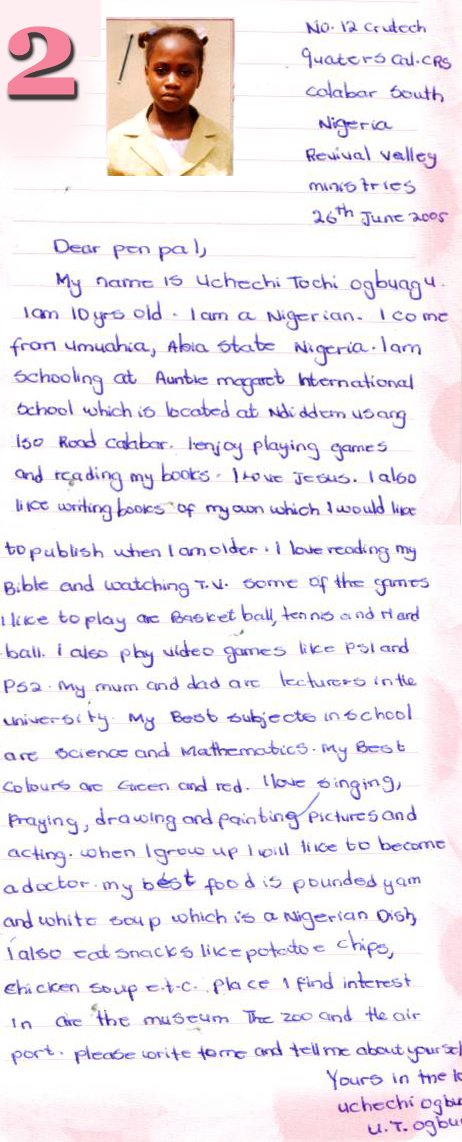 2
No. 12 Crutech
Quaters Cal. CRS
Calabar South
Nigeria
Revival Valley
ministries
26th June 2005
Dear pen pal,
My name is Uchechi Tochi Ogbuagu.
I am 10 yrs old. I am a Nigerian. I come
from Umuahia, Abia State Nigeria. I am
Schooling at Auntie magaret International
School which is located at Ndiddem usang
Iso Road calabar. I enjoy playing games
and reading my books. I love Jesus. I also
like writing books of my own which I would like
to publish when I am older. I love reading my
Bible and watching T.V. some of the games
I like to play are Basket ball, tennis and Hand
ball. I also play video games like PS1 and
PS2. My mum and dad are lecturers in the
university. My Best subjects in school
are Science and Mathematics. My Best
Colours are Green and red. I love singing,
Praying, drawing and painting pictures and
acting. when I grow up I will like to become
a doctor. my best food is pounded yam
and white soup which is a Nigerian Dish,
I also eat snacks like potatoe chips,
Chicken soup e.t.c. place I find interest
In are the museum The zoo and the air
port. please write to me and tell me about yoursel
Yours in the lo
uchechi ogbu
U.T. ogbu